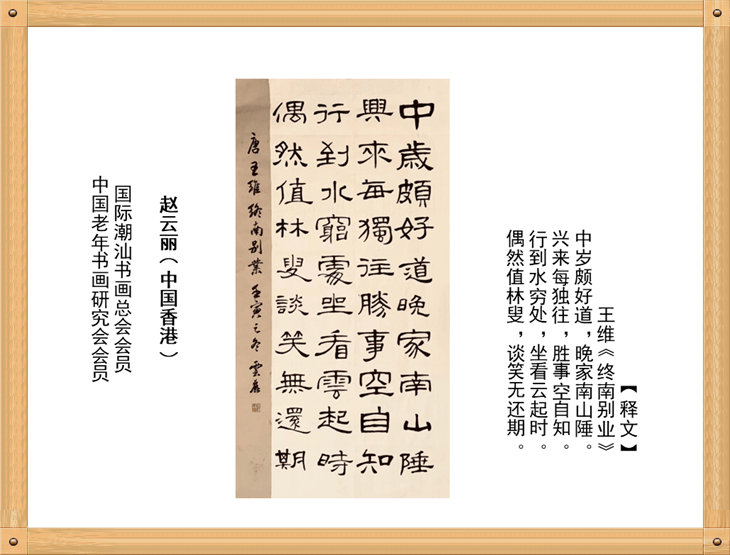 【释文】
王维《终南别业》
中岁颇好道，晚家南山陲。
兴来每独往，胜事空自知。
行到水穷处，坐看云起时。
偶然值林叟，谈笑无还期。
中歲頗好道晚家南山陲
興來每獨往勝事空自知
行到水窮處坐看雲起時
偶然值林叟談笑無還期
唐王維終南别業 壬寅之冬 雲
赵云丽（中国香港）
国际潮汕书画总会会员
中国老年书画研究会会员